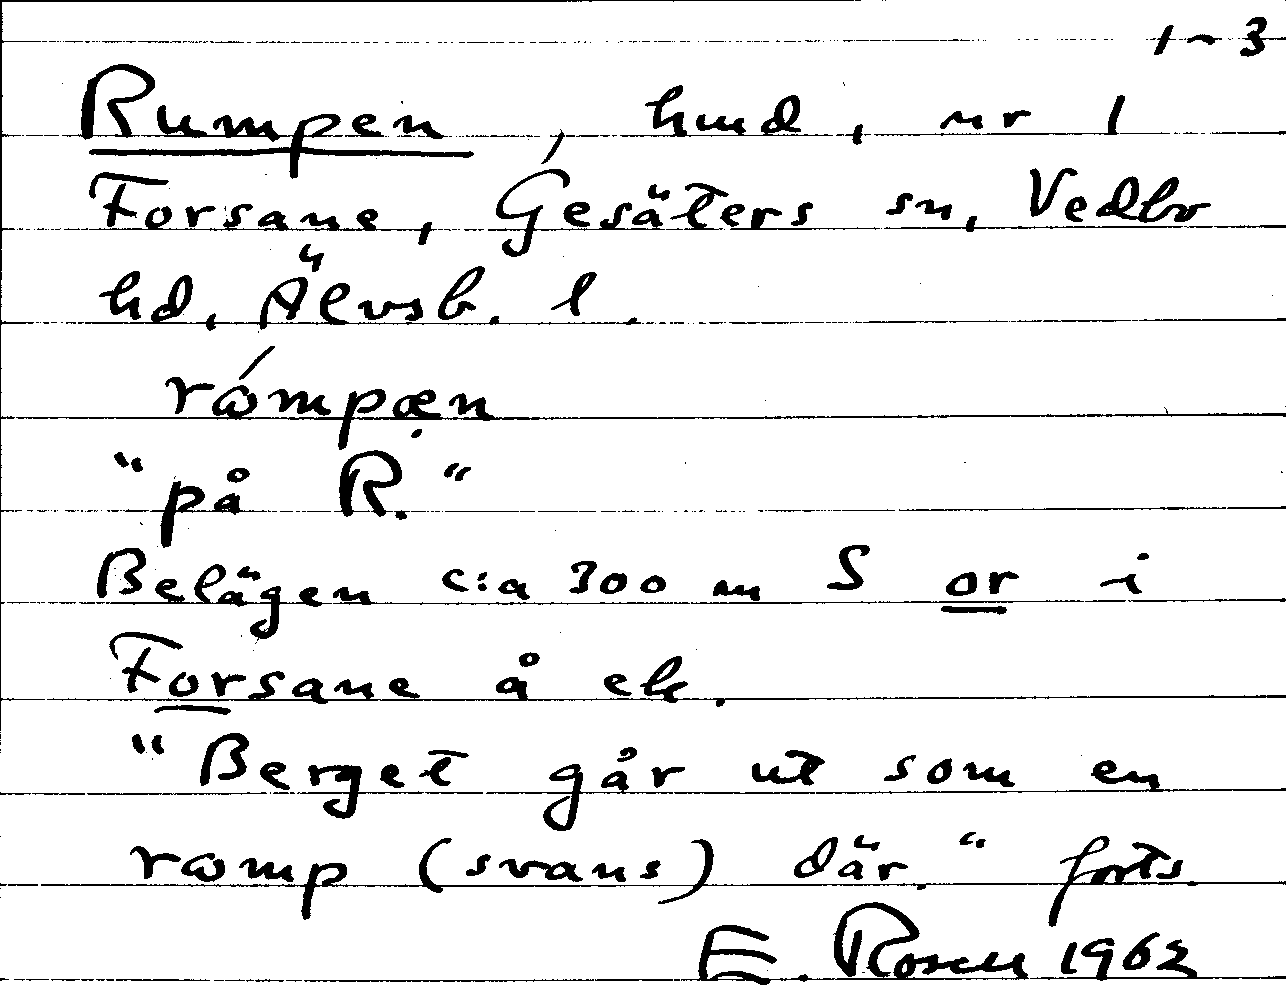 1-3
Rumpen, hmd, nr 1
Forsane, Gesäters sn, Vedbo
hd, Älvsb. l.
rɷ́mpæn
"på R."
Belägen c:a 300 m S or i
Forsane å ek.
"Berget går ut som en
rɷmp (svans) där." forts.
E. Rosell 1962